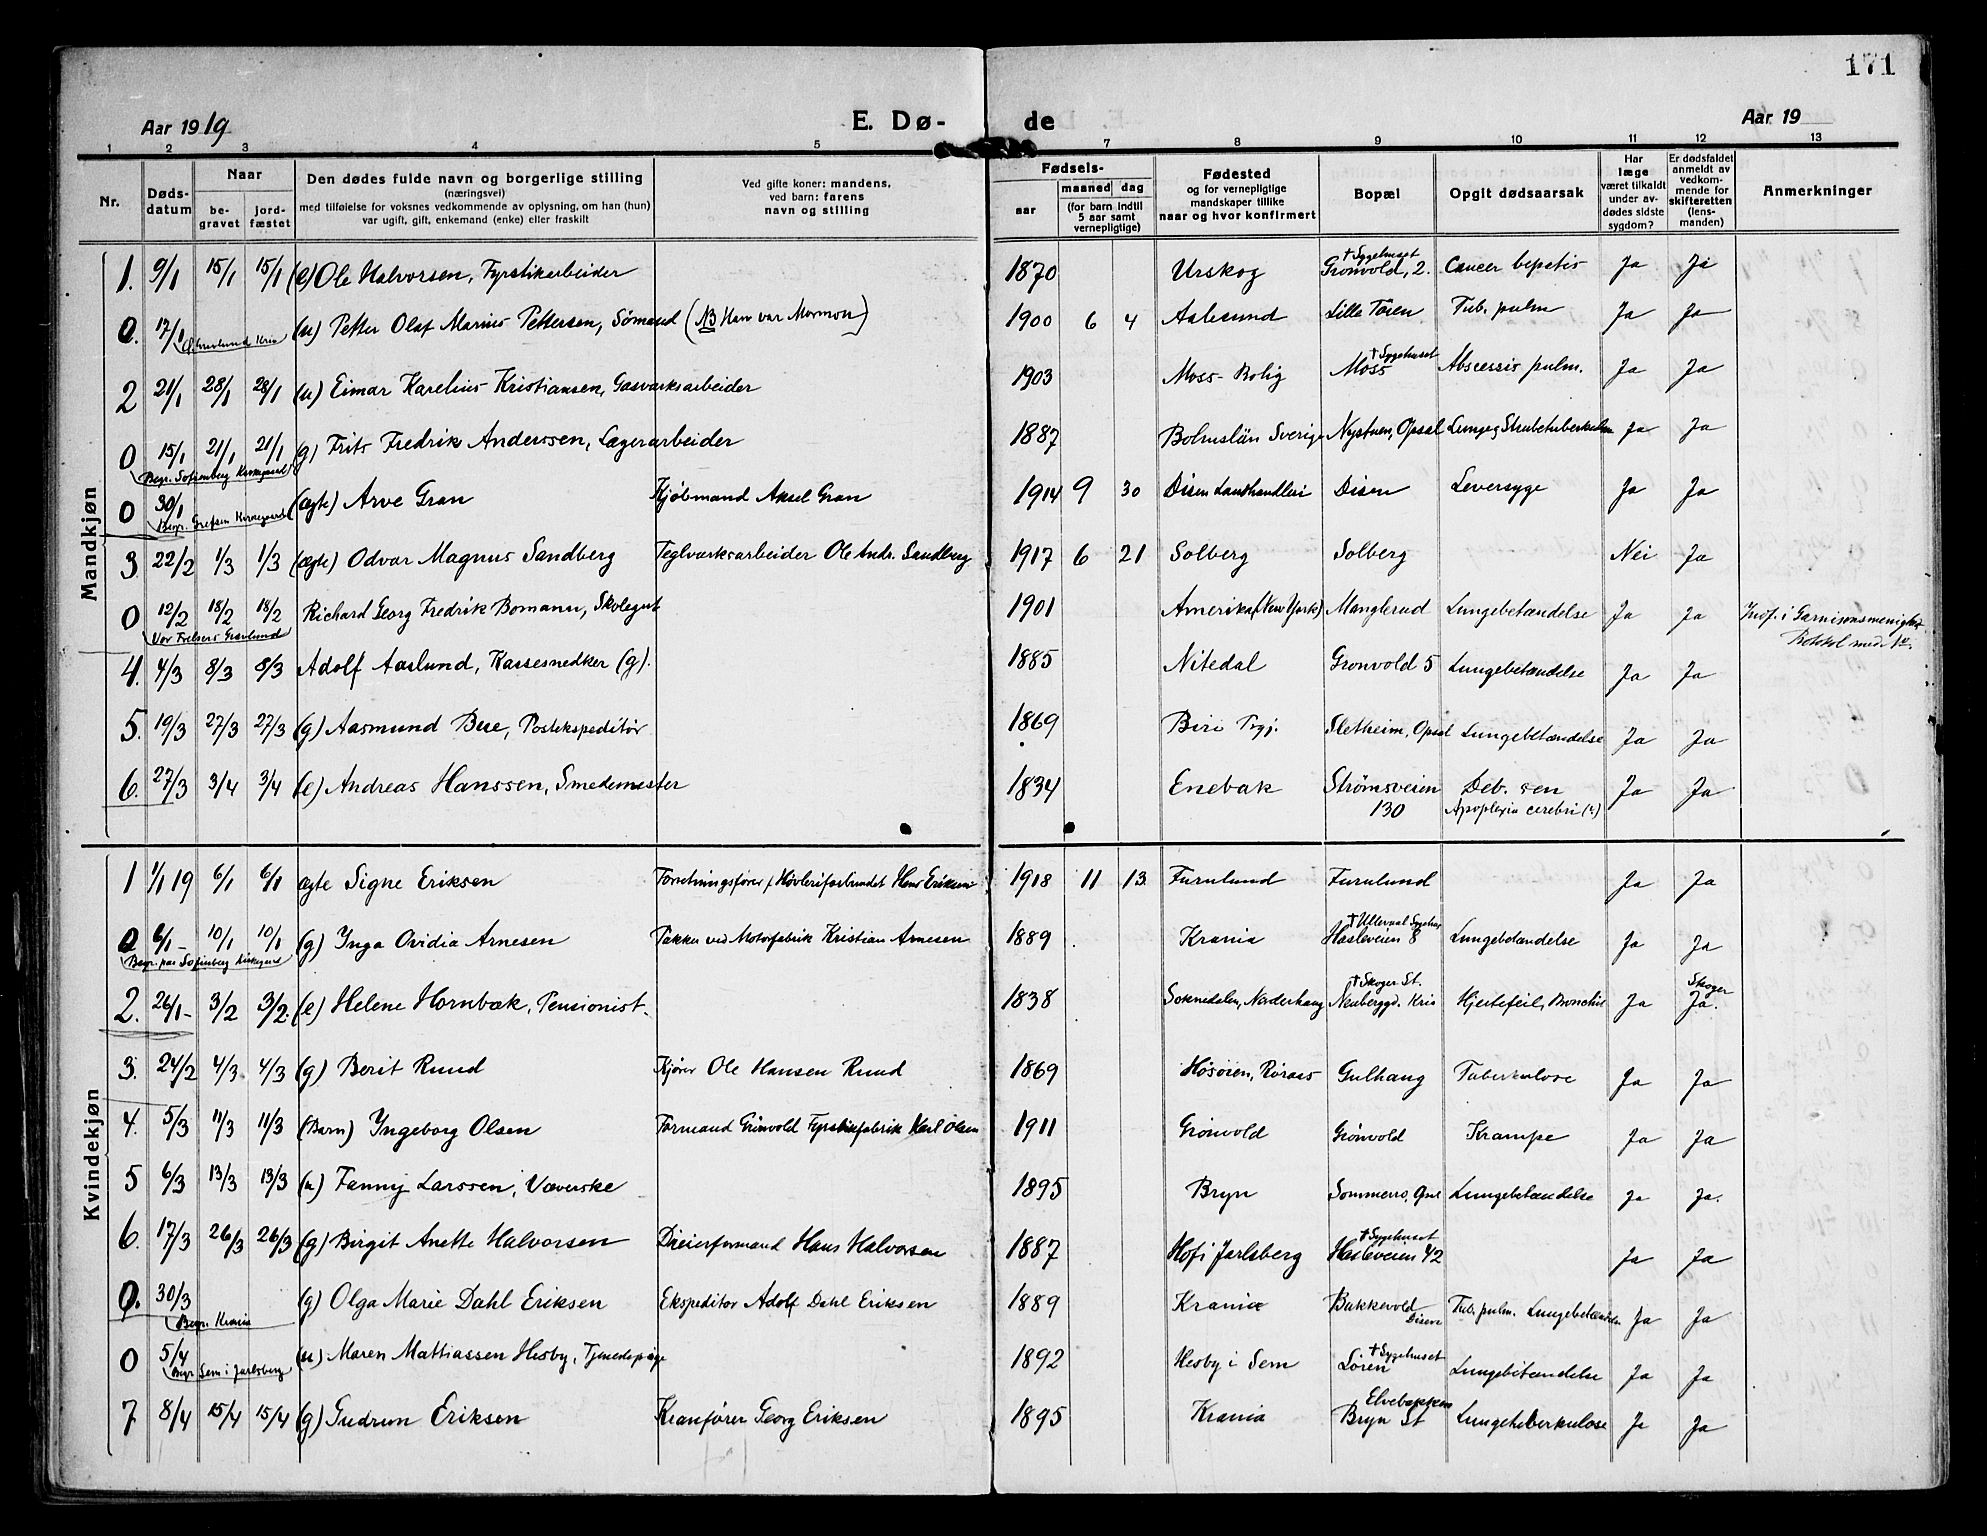 171
Aar 1919 E. Dø- de Aar 19
1 2 3 4 5 7 8 9 10 11 12 13
Nr. Døds-datum Naar be-gravet jord-fæstet Den dødes fulde navn og borgerlige stilling (næringsvei) med tilføielse for voksnes vedkommende av oplysning, om han (hun) var ugift, gift, enkemand (enke) eller fraskilt Ved gifte koner: mandens, ved barn: farens navn og stilling Fødsels- aar maaned dag (for barn indtil 5 aar samt vernepligtige) Fødested og for vernepligtige mandskaper tillike naar og hvor konfirmert Bopæl Opgit dødsaarsak Har læge været tilkaldt under av-dødes sidste sygdom? Er dødsfaldet anmeldt av vedkom-mende for skifteretten (lens-manden) Anmerkninger
Mandkjøn
1. 9/1 15/1 15/1 (e) Ole Halvorsen, Fyrstikarbeider 1870 Urskog † Sygehuset Grønvold, 2. Cancer hepatis Ja Ja
0. 17/1 (u) Petter Olaf Marius Pettersen, Sømand (NB Han var Mormon) 1900 6 4 Aalesund Lille Tøien Tub. pulm Ja Ja
2 21/1 28/1 28/1 (u) Eimar Karelius Kristiansen, Gasværksarbeider 1903 Moss- Bolig † Sygehuset Moss Abscessis pulm. Ja Ja
0 15/1 21/1 21/1 (g) Frits Fredrik Anderssen, Lagerarbeider 1887 Bohuslän Sverige Nystuen, Opsal Lunge & Strubetuberkulose Ja Ja
Begr. Sofienberg Kirkegaard
0 30/1 (ægte) Arve Gran Kjøbmand Aksel Gran 1914 9 30 Disen Landhandleri Disen Leversyge Ja Ja
Begr. Grefsen Kirkegaard
3 22/2 1/3 1/3 (ægte) Odvar Magnus Sandberg Teglværksarbeider Ole Andr. Sandberg 1917 6 21 Solberg Solberg Nei Ja
0 12/2 18/2 18/2 Richard Georg Fredrik Bomann, Skolegut 1901 Amerika (New York) Manglerud Lungebetændelse Ja Ja Indf. i Garnisonsmenighed
Vor Frelsers Gravlund
4. 4/3 8/3 8/3 Adolf Aaslund, Kassesnedker (g). 1885 Nitedal Grønvold 5 Lungebetændelse Ja Ja
5. 19/3 27/3 27/3 (g) Aasmund Bue, Postekspeditør 1869 Biri Prgj. Sletheim, Opsal Lungebetændelse Ja Ja
6. 27/3 3/4 3/4 (e) Andreas Hanssen, Smedemester 1834 Enebak Strømsveien 130 Deb. sen Apoplexia cerebri (?) Ja Ja
Kvindekjøn
1 1/1 19 6/1 6/1 ægte Signe Eriksen Forretningsfører f. Høvleriforbundet Hans Eriksen 1918 11 13 Furulund Furulund Ja Ja
0 6/1- 10/1 10/1 (g) Inga Ovidia Arnesen Pakker ved Motorfabrik Kristian Arnesen 1889 Krania † Ullevaal Sygehus Hasleveien 8 Lungebetændelse Ja Ja
Begr. paa Sofienberg Kirkegaard
2. 26/1- 3/2 3/2. (e) Helene Hornbæk, Pensionist. 1838 Soknedalen, Norderhaug † Skoger St. Neuberggd. Kria Hjertefeil, Bronchit Ja Skoger Ja.
3. 24/2 4/3 4/3 (g) Berit Ruud Kjører Ole Hansen Ruud 1869 Høsøien, Røraas Gulhaug Tuberkulose Ja Ja
4. 5/3 11/3 11/3 (Barn) Ingeborg Olsen Formand Grønvold Fyrstikfabrik Karl Olsen 1911 Grønvold Grønvold Krampe Ja Ja
5 6/3 13/3 13/3 (u) Fanny Larssen, Væverske 1895 Bryn Sommerro, Lungebetændelse Ja Ja.
6. 17/3 26/3 26/3 (g) Birgit Anette Halvorsen Dreierformand Hans Halvorsen 1887 Hof i Jarlsberg † Sygehuset Hasleveien 42 Ja Ja
0. 30/3 (g) Olga Marie Dahl Eriksen Ekspeditør Adolf Dahl Eriksen 1889 Krania Bakkevold Disen Tub. pulm. Lungebetændelse Ja Ja
Begr. Krania
0 5/4 (u) Maren Mattiassen Hesby, Tjenestepige 1892 Hesby i Sem † Sygehuset Løren Lungebetændelse Ja Ja
Begr. Sem i Jarlsberg
7 8/4 15/4 15/4 (g) Gudrun Eriksen Kranfører Georg Eriksen 1895 Krania Elvebakken Bryn St Lungetuberkulose Ja Ja